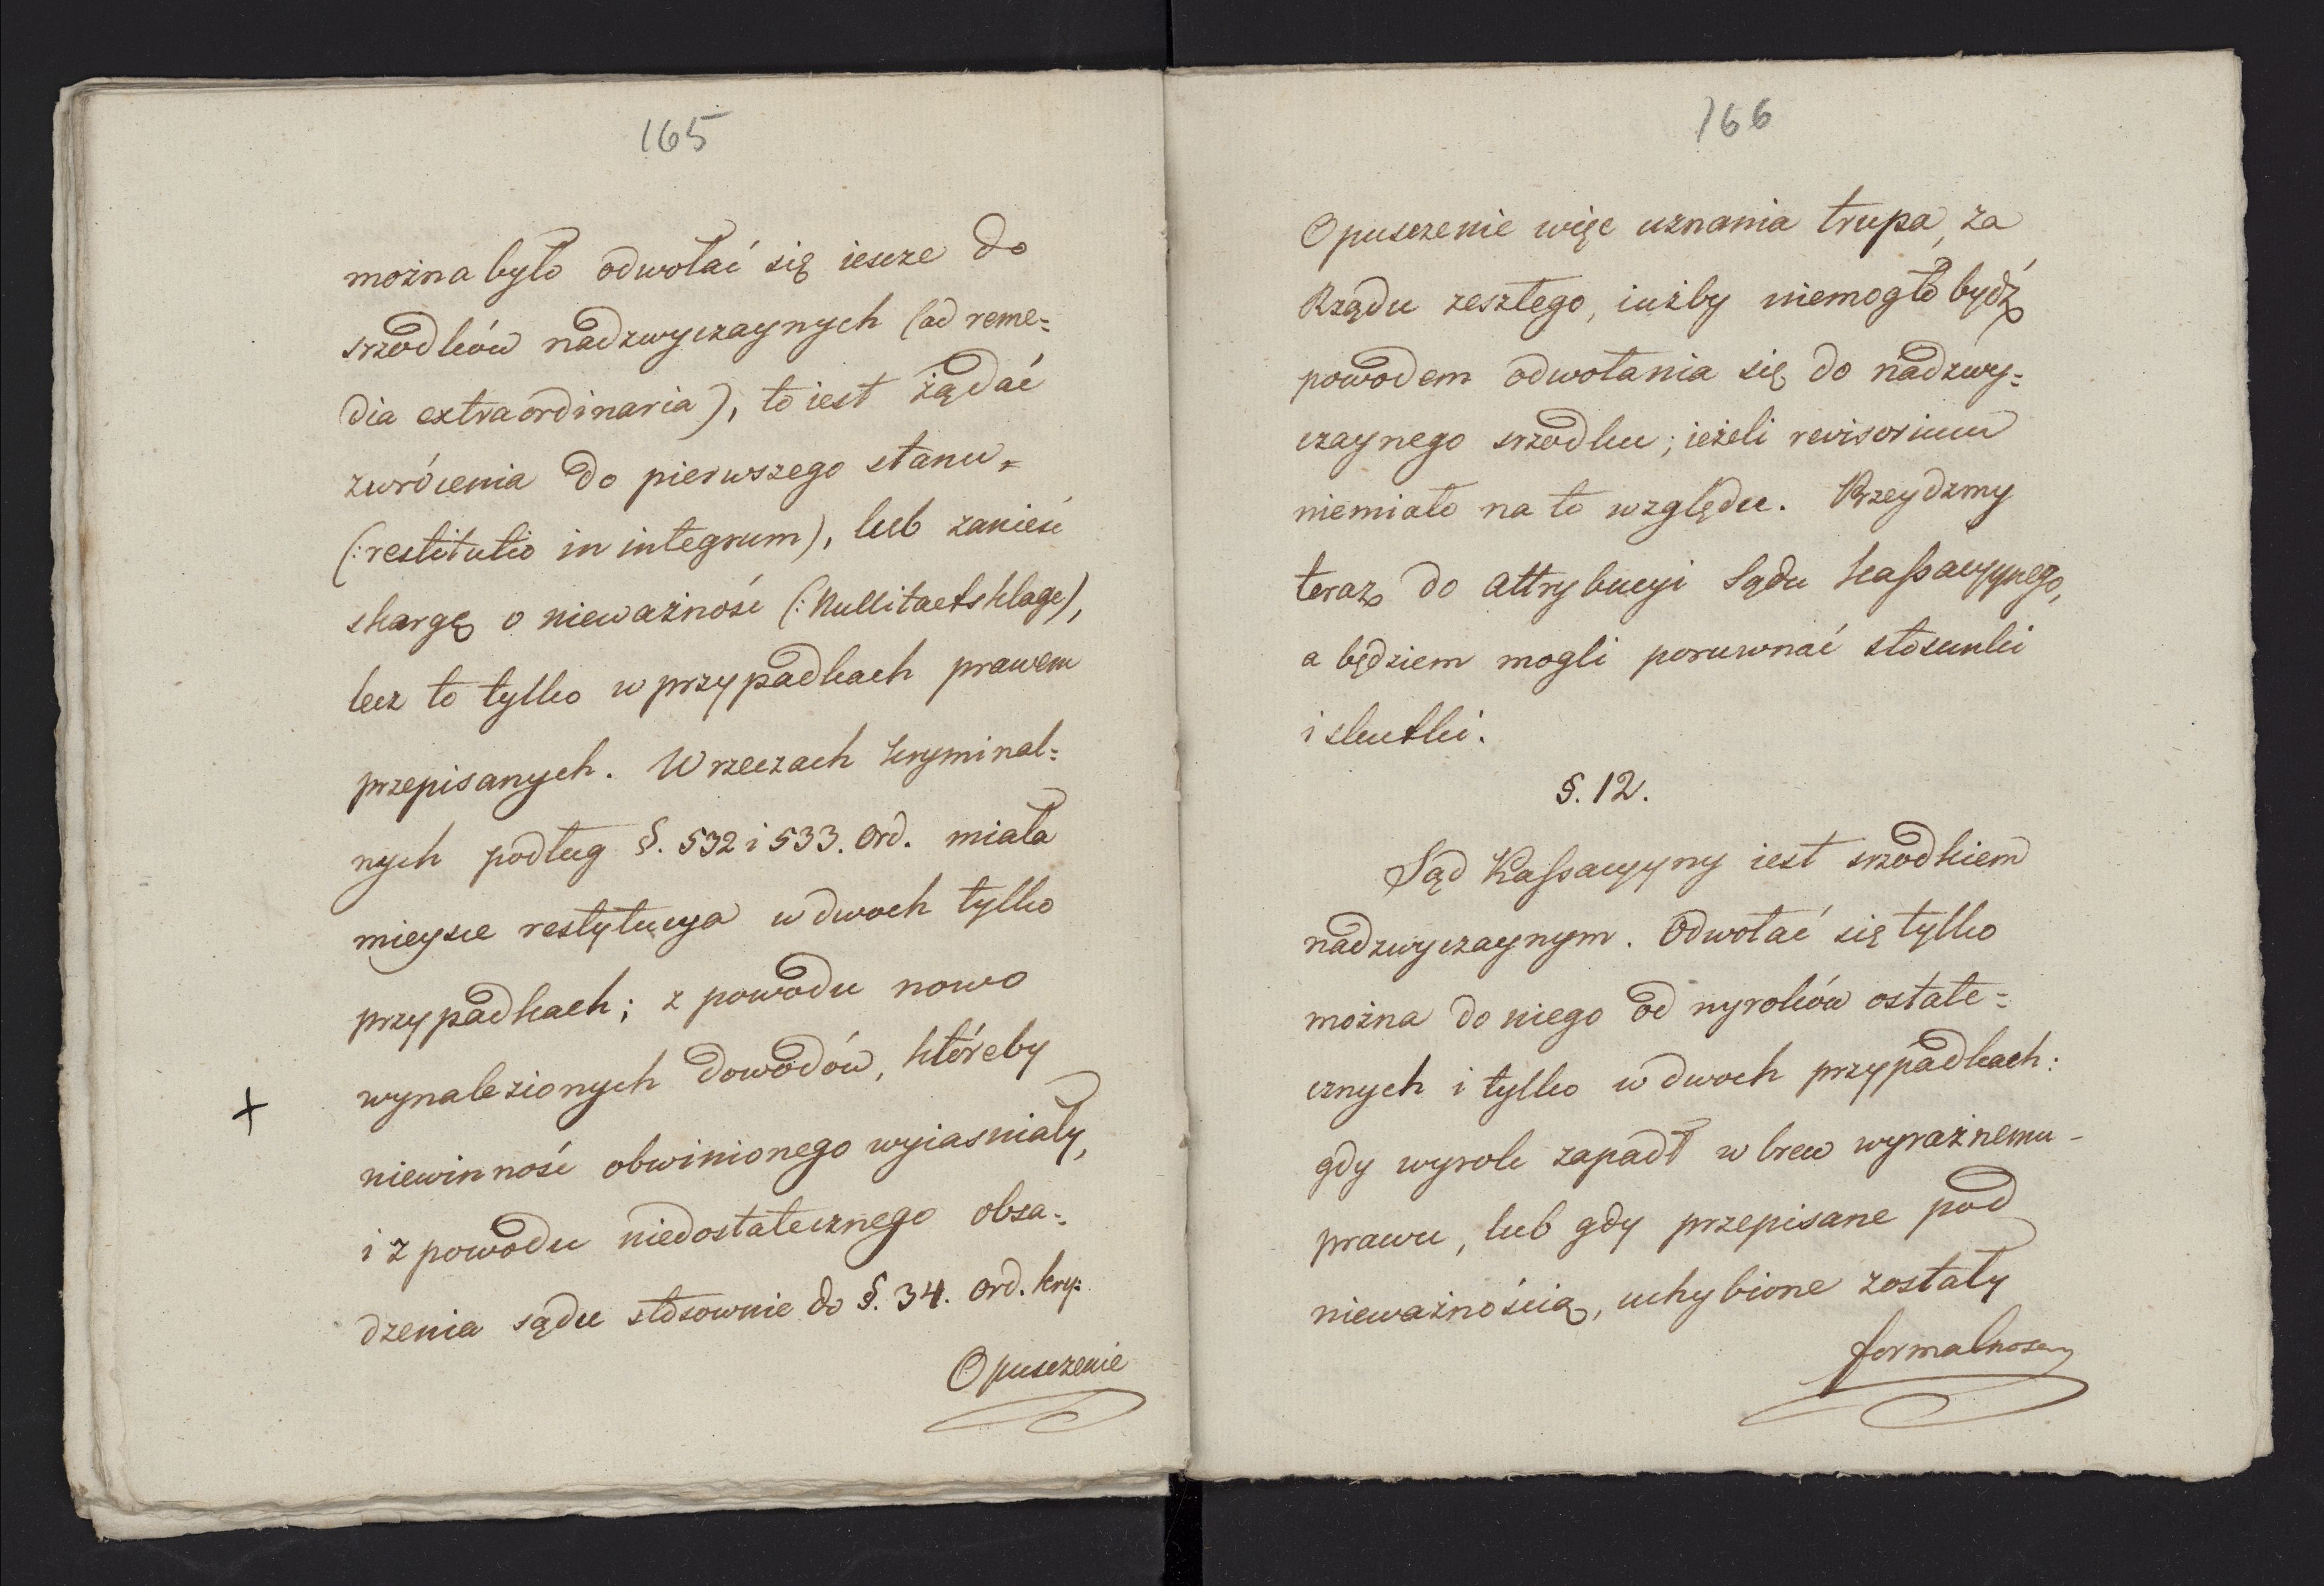 165
można było odwołać się iescze do
srzodków nadzwyczaynych (ad reme=
dia extraordinaria), to iest żądać
zwrócenia do pierwszego stanu=
(:restitutio in integrum), lub zanieść
skargę o nieważność (:Nullitaetsklage),
lecz to tylko w przypadkach prawem
przepisanych. W rzeczach kryminal=
nych podług §. 532 i 533. Ord. miała
mieysce restytucya w dwoch tylko
przypadkach; z powodu nowo
wynalezionych dowodów, któreby
niewinność obwinionego wyiasniały,
i z powodu niedostatecznego obsa=
dzenia sądu stosownie do §. 34. Ord. kry:
Opusczenie
166
Opusczenie więc uznania trupa, za
Rządu zeszłego, iużby niemogło bydź
powodem odwołania się do nadzwy=
czaynego srzodku; ieżeli revisorium
niemiało na to względu. Przeydzmy
teraz do attrybucyi Sądu kassacyynego,
a będziem mogli porownać stosunki
i skutki.
§. 12.
Sąd Kassacyyny iest srzodkiem
nadzwyczaynym. Odwołać się tylko
można do niego od wyroków ostate=
cznych i tylko w dwoch przypadkach:
gdy wyrok zapadł w brew wyraznemu-
prawu, lub gdy przepisane pod
nieważnością, uchybione zostały
formalnosci